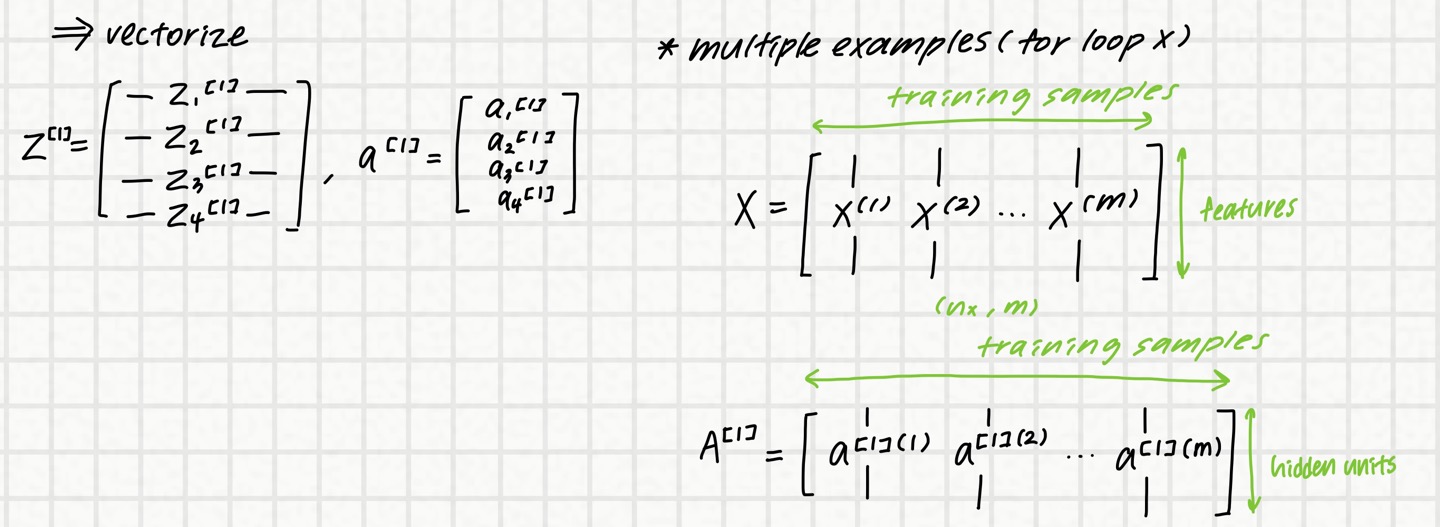 ⇒ vectorize
Z^[1] = [ — Z₁^[1] — ; — Z₂^[1] — ; — Z₃^[1] — ; — Z₄^[1] — ] , a^[1] = [ a₁^[1] ; a₂^[1] ; a₃^[1] ; a₄^[1] ]
* multiple examples ( for loop X )
training samples
X = [ x^(1) x^(2) ... x^(m) ] features
(nx , m)
training samples
A^[1] = [ a^[1](1) a^[1](2) ... a^[1](m) ] hidden units